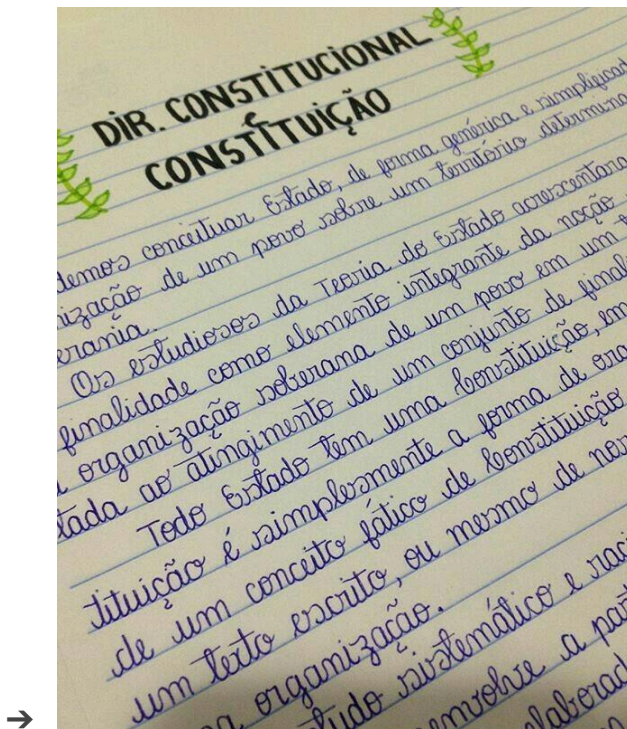 DIR. CONSTITUCIONAL
E
CONSTITUIÇÃO
demos conceituar Estado, de forma genérica e simplificad
nização de um povo sobre um território determina
erania.
Os estudiosos da Teoria do Estado acrescentara
finalidade como elemento integrante da noção
a organização soberana de um povo em um t
tada ao atingimento de um conjunto de final
Todo Estado tem uma Constituição, em
tituição é simplesmente a forma de org
de um conceito fático de Constituição
um texto escrito, ou mesmo de nor
a organização.
tudo sistemático e raci
envolve a par
elaborad